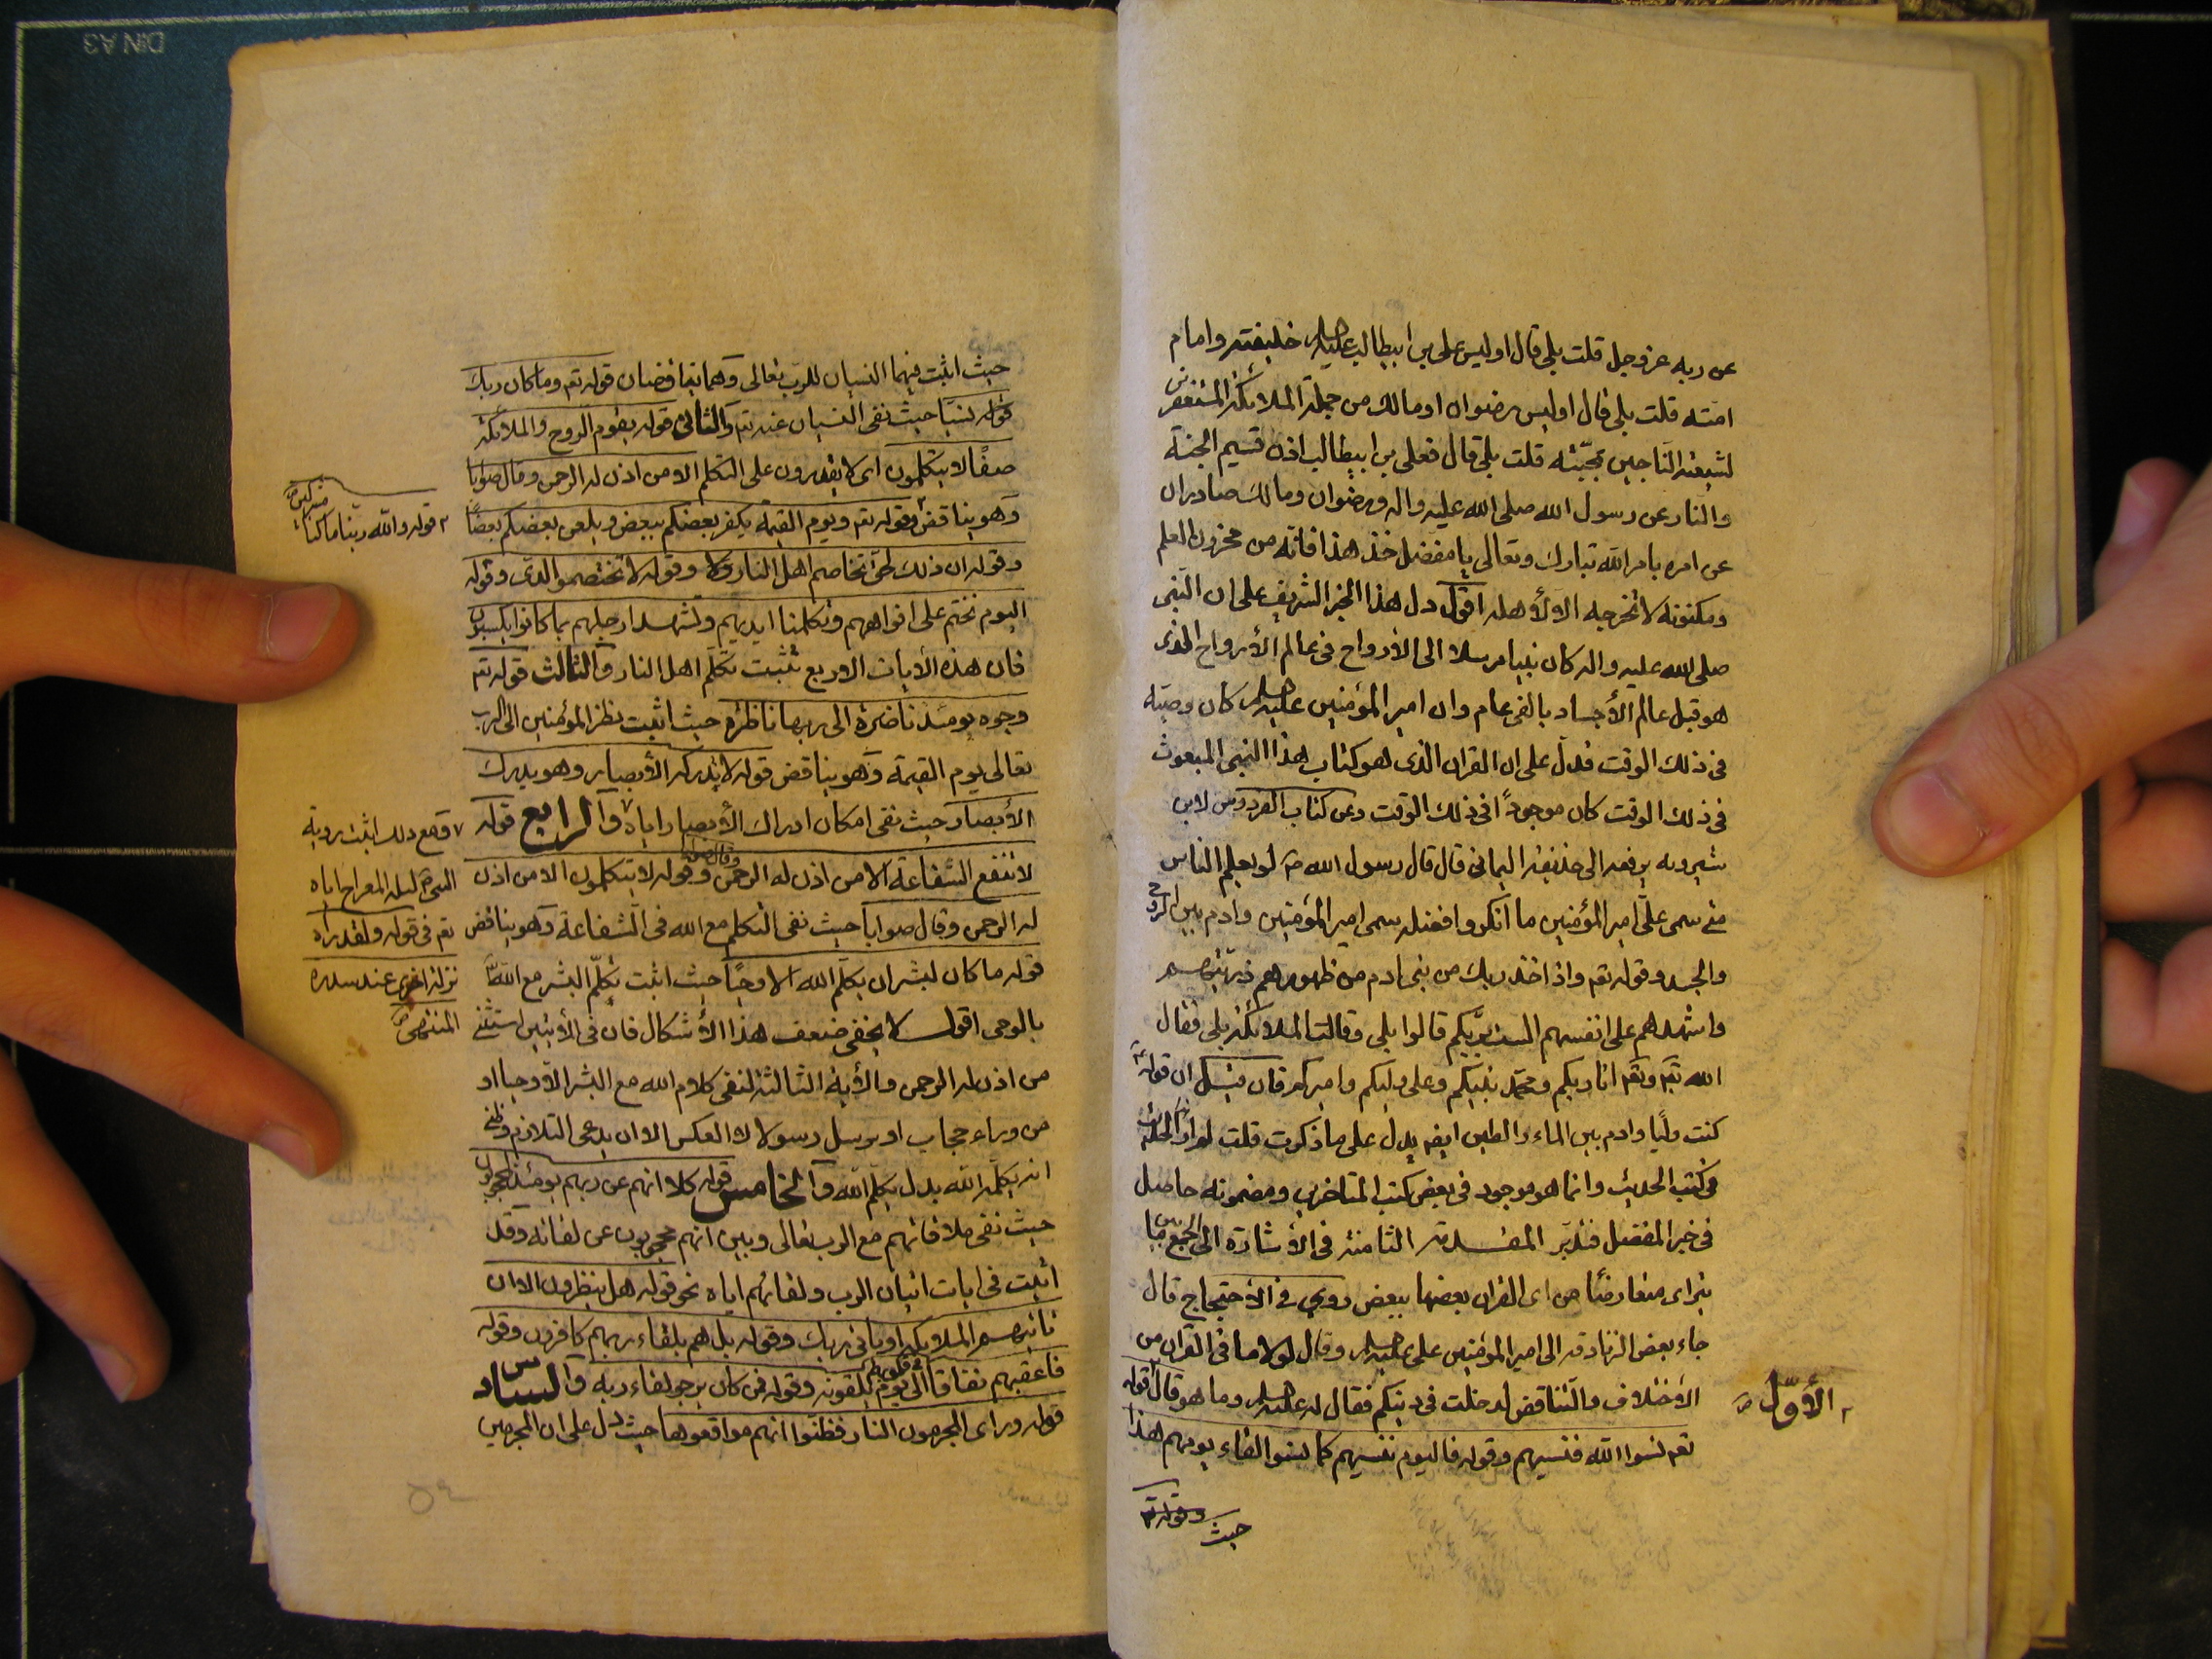 عن ربه عز وجل قلت بلى قال اوليس علي بن ابيطالب عليه السلم خليفته وامام
امته قلت بلى قال اوليس رضوان او مالك من جملة الملائكة المستغفرين
لشيعته الناجين بمحبته قلت بلى قال فعلي بن ابيطالب اذن قسيم الجنة
والنار عن رسول الله صلى الله عليه واله ورضوان ومالك صادران
عن امره بامر الله تبارك وتعالى يا مفضل خذ هذا فانه من مخزون العلم
ومكنونه لا تخرجه الا لأهله اقول دل هذا الخبر الشريف على ان النبي
صلى الله عليه واله كان نبيا مرسلا الى الارواح في عالم الأرواح الذى
هو قبل عالم الأجساد بالفي عام وان امير المؤمنين عليه السلم كان وصيّه
في ذلك الوقت فدلّ على ان القران الذى هو كتاب هذا النبي المبعوث
في ذلك الوقت كان موجوداً في ذلك الوقت وعن كتاب الفردوس لابن
شيرويه يرفعه الى حذيفة اليماني قال قال رسول الله ص لو يعلم الناس
متى سمى علىّ امير المؤمنين ما انكروا فضله سمى امير المؤمنين وادم بين الروح
والجسد وقوله تع واذ اخذ ربك من بني ادم من ظهورهم ذريتهم
واشهدهم على انفسهم الست بربّكم قالوا بلى وقالت الملائكة بلى فقال
الله تع انا ربكم ومحمّد نبيكم وعلى وليكم واميركم فان قيل ان قوله ع
كنت وليّا وادم بين الماء والطين ايضا يدل على ما ذكرت قلت لم ار الحديث
في كتب الحديث وانما هو موجود في بعض كتب المتاخرين ومضمونه حاصل
في خبر المفضل فتدبر المقدمة الثامنة في الأشارة الى الجمع بين ما
يتراى متعارضًا من اى القران بعضها ببعض روي في الأحتجاج قال
جاء بعض الزنادقة الى امير المؤمنين علي عليه السلم وقال لولا ما في القران من
الأختلاف والتناقض لدخلت في دينكم فقال له عليه السلم وما هو قال قوله
الأوّل ص
تع نسوا الله فنسيهم وقوله فاليوم ننسيهم كما نسوا لقاء يومهم هذا
وقوله تع
حيث
حيث اثبت فيهما النسيان للرب تعالى وهما تناقضان قوله تع وما كان ربك
نسيّا حيث نفى النسيان عنه تع والثاني قوله يقوم الروح والملائكة
صفّا لا يتكلمون اى لا يقدرون على التكلم الا من اذن له الرحمن وقال صوابا
وهو يناقض وقوله تع ويوم القيمة يكفر بعضكم ببعض ويلعن بعضكم بعضًا
قوله والله ربنا ما كنا مشركين ص
وقوله ان ذلك لحق تخاصم اهل النار وقوله لا تختصموا لدى وقوله
اليوم نختم على افواههم وتكلمنا ايديهم وتشهد ارجلهم بما كانوا يكسبون
فان هذه الأيات الاربع تثبت تكلّم اهل النار والثالث قوله تع
وجوه يومئذ ناضرة الى ربها ناظرة حيث اثبت نظر المؤمنين الى الرب
تعالى يوم القيمة وهو يناقض قوله لا تدركه الأبصار وهو يدرك
الأبصار حيث نفى امكان ادراك الأبصار اياه والرابع قوله
لا تنفع الشفاعة الا من اذن له الرحمن وقوله لا يتكلمون الا من اذن
له الرحمن وقال صوابا حيث نفى التكلم مع الله في الشفاعة وهو يناقض
قوله ما كان لبشر ان يكلّمه الله الا وحيًا حيث اثبت تكلّم البشر مع الله
بالوحي اقول لا يخفى ضعف هذا الأشكال فان في الأيتين استثنى
ومع ذلك اثبت روية
النبي ص ليلة المعراج اياه
تع في قوله ولقد راه
نزلة اخرى عند سدرة
المنتهى ص
من اذن له الرحمن والأية الثالثة لنفي كلام الله مع البشر الا وحيا او
من وراء حجاب او يرسل رسولا لا العكس الا ان يدعى التلازم
انه يكلّمه الله بدل يكلّم الله والخامس قوله كلا انهم عن ربهم يومئذ لمحجوبون
حيث نفى ملاقاتهم مع الرب تعالى وبين انهم محجوبون عن لقائه وقد
اثبت في ايات اتيان الرب ولقائهم اياه نحو قوله هل ينظرون الا ان
تاتيهم الملائكة او ياتى ربك وقوله بل هم بلقاء ربهم كافرون وقوله
فاعقبهم نفاقا في قلوبهم الى يوم يلقونه وقوله فمن كان يرجو لقاء ربه والسادس
قوله وراى المجرمون النار فظنوا انهم مواقعوها حيث دل على ان المجرمين